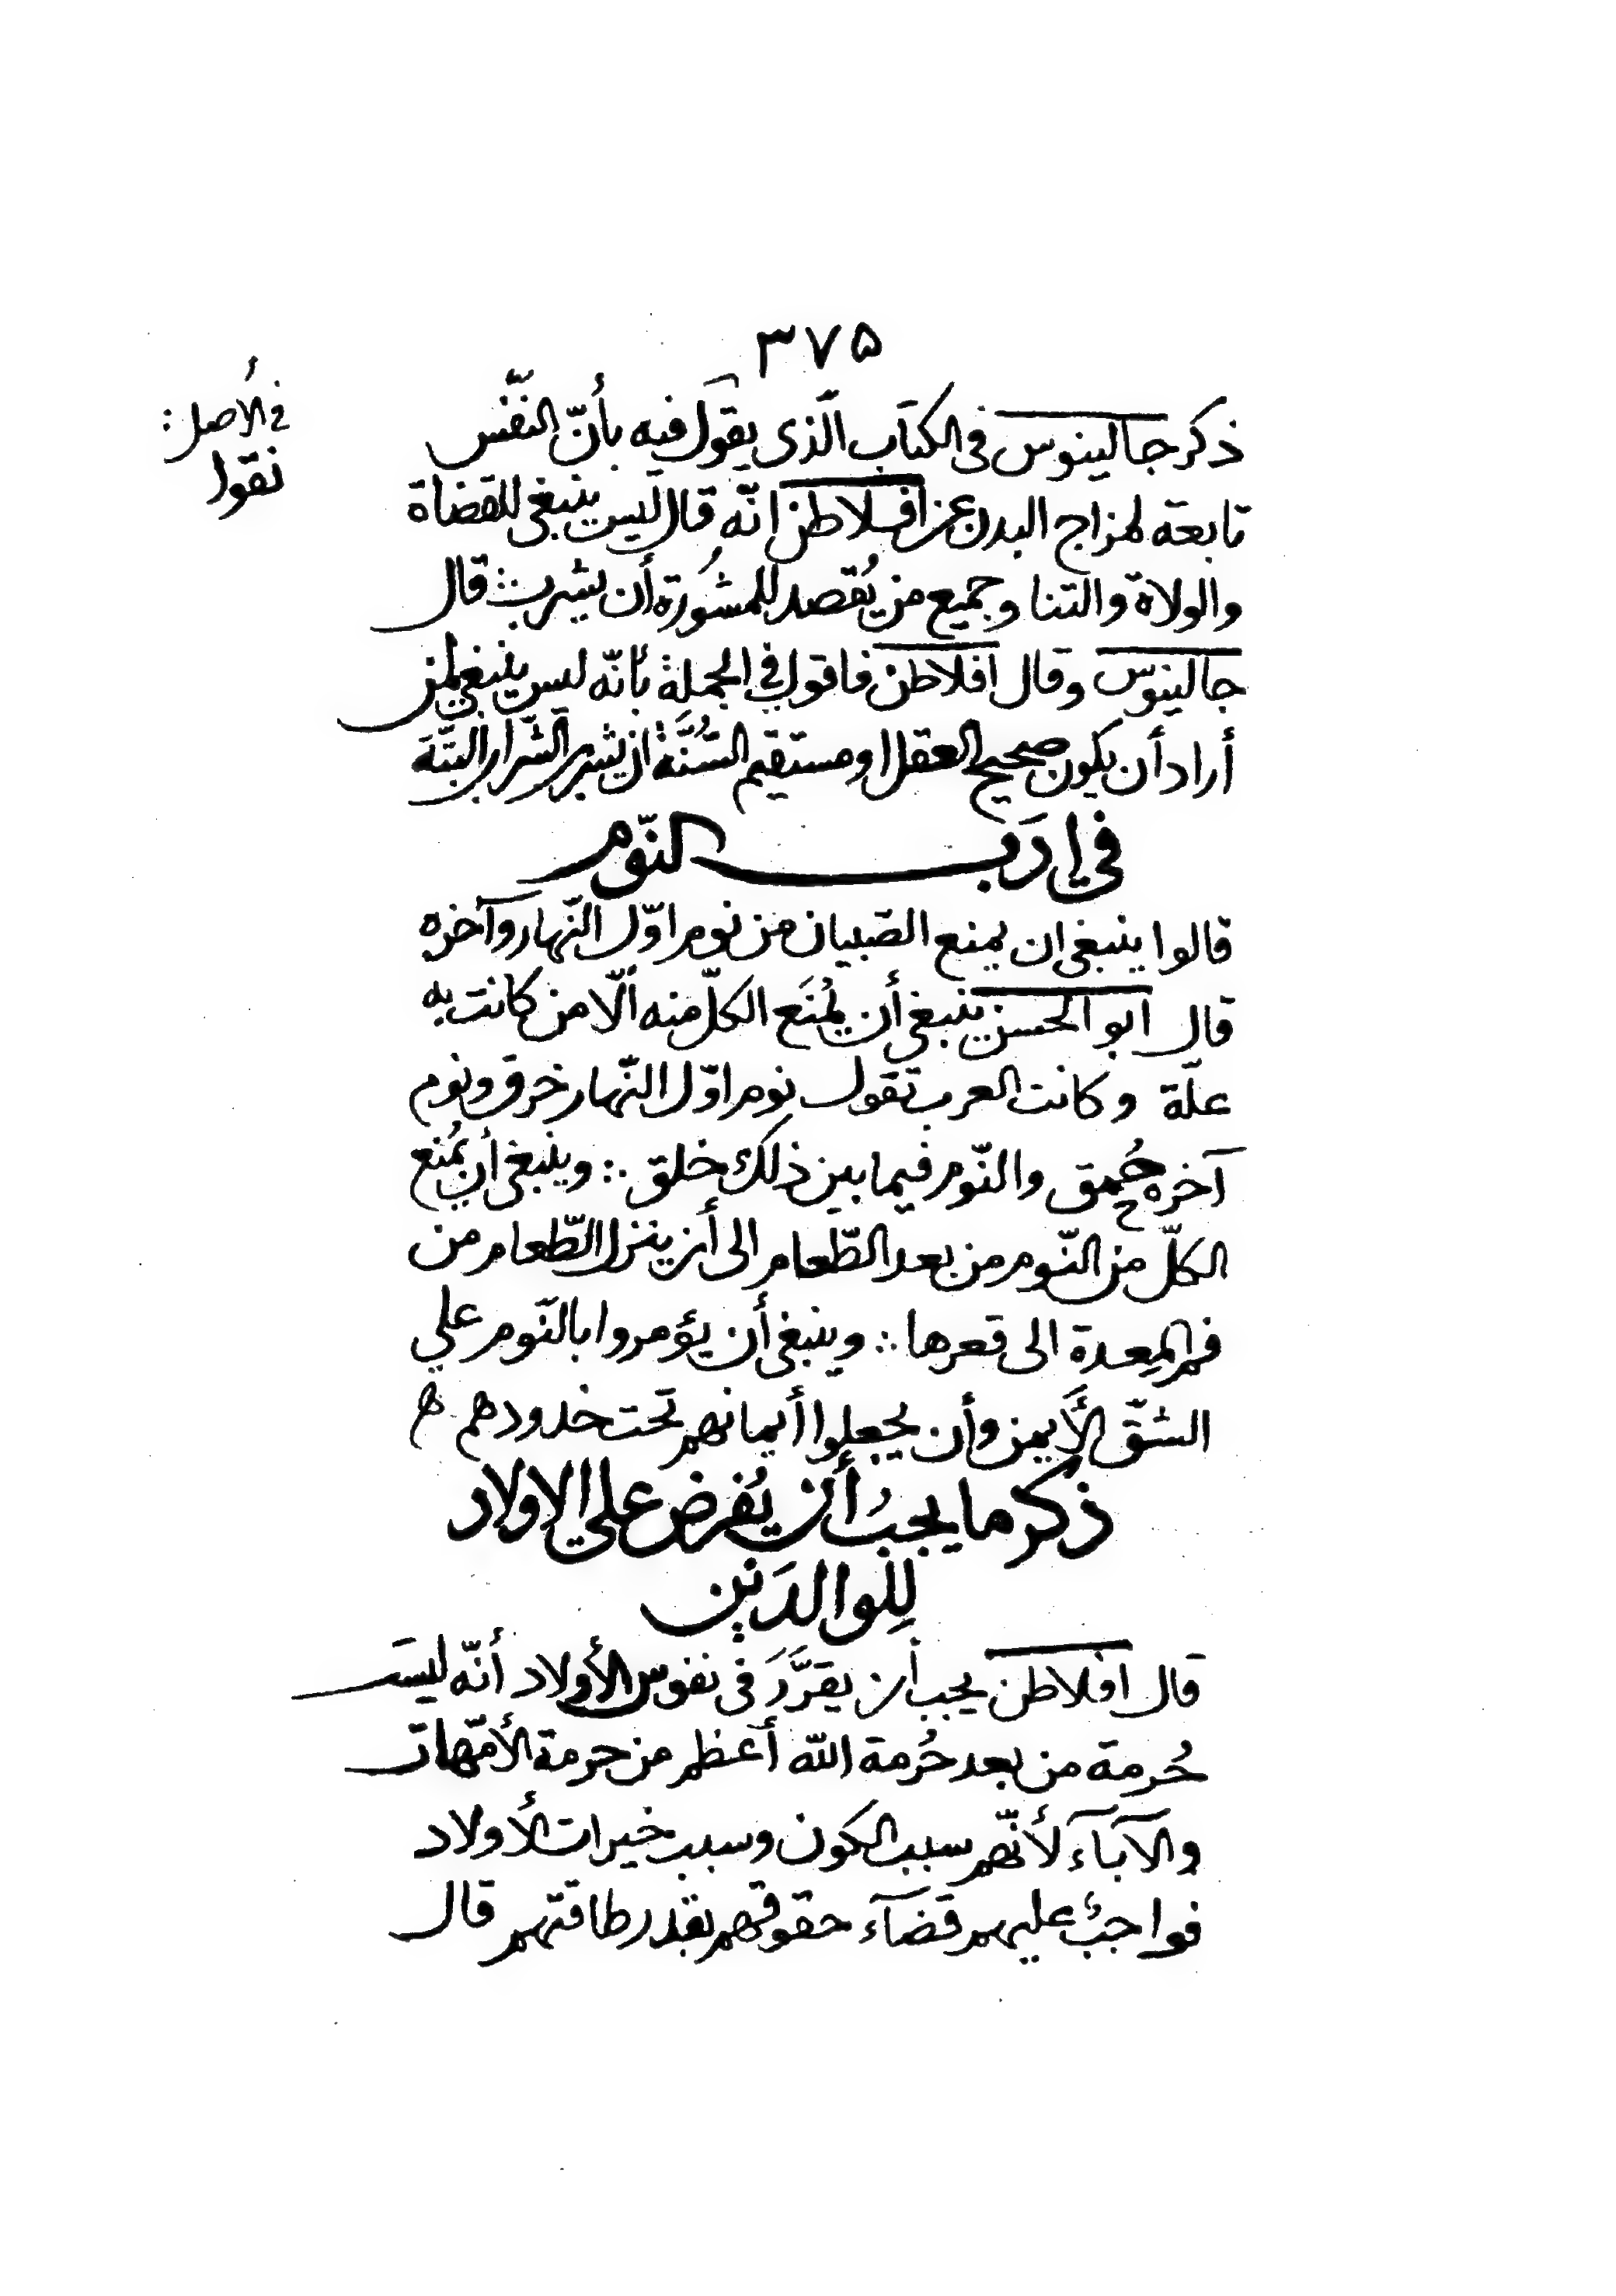 ٣٧۵
ذكر جالينوس فى الكتاب الّذى يقول فيه بأنّ النفّس
تابعة لمزاج البدن عن افلاطن انّه قال ليس ينبغى للقضاة
والولاة والتنا وجميع من يُقصد للمشُورة أن يشرب ∴ قال
جالينوس وقال افلاطن فاقول فى الجملة بأنّه ليس ينبغى لمن
أراد أن يكون صحيح العقل او مستقيم السُّنَّة ان يشرب الشّراب البتّة
فى ادَب النّوم
قالوا ينبغى ان يمنع الصّبيان من نوم اوّل النّهار وآخره
قال ابو الحسن ينبغى أن يُمنَع الكلّ منه الّا من كانت به
علّة وكانت العرب تقول نوم اوّل النّهار خرق ونوم
آخره حُمق والنّوم فيما بين ذلك خلق ∴ وينبغى أن يُمنع
الكلّ من النّوم من بعد الطّعام الى أن ينزل الطّعام من
فم المِعدة الى قعرها ∴ وينبغى أن يؤمروا بالنّوم على
الشّقّ الأَيمن وأن يجعلوا أيمانهم تحت خدودهم ه
ذكر ما يجبُ أن يُفرض على الاولاد
لِلوالدَين
قال افلاطن يجب أن يقرَّرَ فى نفوس الأولاد أنّه ليسَت
حُرمة من بعد حُرمة اللّه أعظم من حرمة الأمّهات
والآبآء لأنّهم سبب الكون وسبب خيرات الأولاد
فواجبٌ عليهم قضآء حقوقهم بقدر طاقتهم قال
فى الأصل:
نقوا